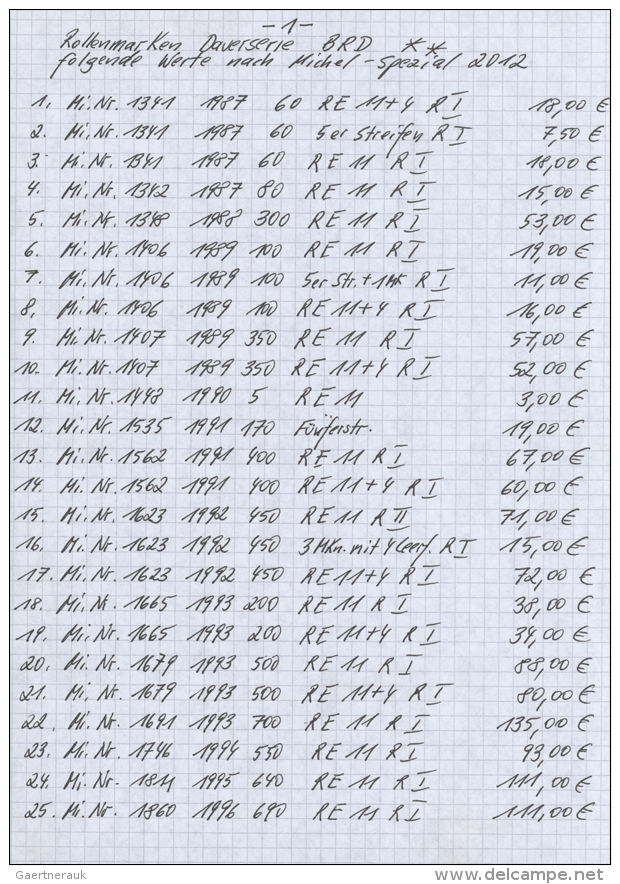 -1-
Rollenmarken Dauerserie BRD **
folgende Werte nach Michel-Spezial 2012
1. Mi.Nr. 1341 1987 60 RE 11+4 R I 18,00 €
2. Mi.Nr. 1341 1987 60 5er Streifen R I 7,50 €
3. Mi.Nr. 1341 1987 60 RE 11 R I 18,00 €
4. Mi.Nr. 1342 1987 80 RE 11 R I 15,00 €
5. Mi.Nr. 1348 1988 300 RE 11 R I 53,00 €
6. Mi.Nr. 1406 1989 100 RE 11 R I 19,00 €
7. Mi.Nr. 1406 1989 100 5er Str.+1Mk R I 11,00 €
8. Mi.Nr. 1406 1989 100 RE 11+4 R I 16,00 €
9. Mi.Nr. 1407 1989 350 RE 11 R I 57,00 €
10. Mi.Nr. 1407 1989 350 RE 11+4 R I 52,00 €
11. Mi.Nr. 1448 1990 5 RE 11 3,00 €
12. Mi.Nr. 1535 1991 170 Fünferstr. 19,00 €
13. Mi.Nr. 1562 1991 400 RE 11 R I 67,00 €
14. Mi.Nr. 1562 1991 400 RE 11+4 R I 60,00 €
15. Mi.Nr. 1623 1992 450 RE 11 R II 71,00 €
16. Mi.Nr. 1623 1992 450 3 MKn. mit 4 Leerf. R I 15,00 €
17. Mi.Nr. 1623 1992 450 RE 11+4 R I 72,00 €
18. Mi.Nr. 1665 1993 200 RE 11 R I 38,00 €
19. Mi.Nr. 1665 1993 200 RE 11+4 R I 34,00 €
20. Mi.Nr. 1679 1993 500 RE 11 R I 88,00 €
21. Mi.Nr. 1679 1993 500 RE 11+4 R I 80,00 €
22. Mi.Nr. 1691 1993 700 RE 11 R I 135,00 €
23. Mi.Nr. 1746 1994 550 RE 11 R I 93,00 €
24. Mi.Nr. 1811 1995 640 RE 11 R I 111,00 €
25. Mi.Nr. 1860 1996 690 RE 11 R I 111,00 €
Gaertnerauk
www.delcampe.net